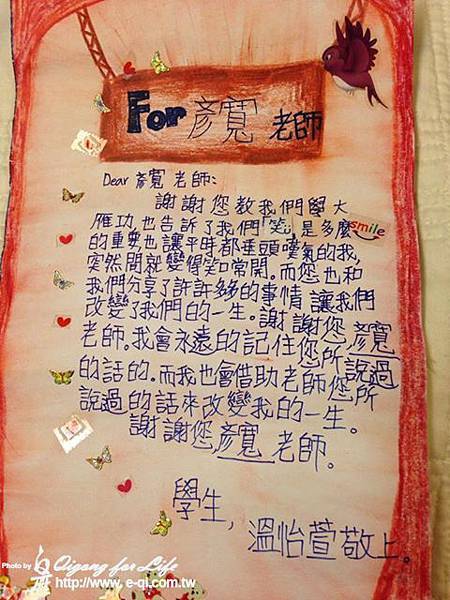 For 彥寬 老師
Dear 彥寬 老師:
謝謝您教我們學大
雁功也告訴了我們「笑」是多麼
smile
的重要也讓平時都垂頭嘆氣的我,
突然間就變得笑口常開。而您也和
我們分享了許許多多的事情 讓我們
改變了我們的一生。謝謝您 彥寬
老師。我會永遠的記住您所 說過
的話的。而我也會借助老師您所
說過的話來改變我的一生。
謝謝您彥寬 老師。
學生,
溫怡萱敬上。
Photo by Qigong for Life
http://www.e-qi.com.tw